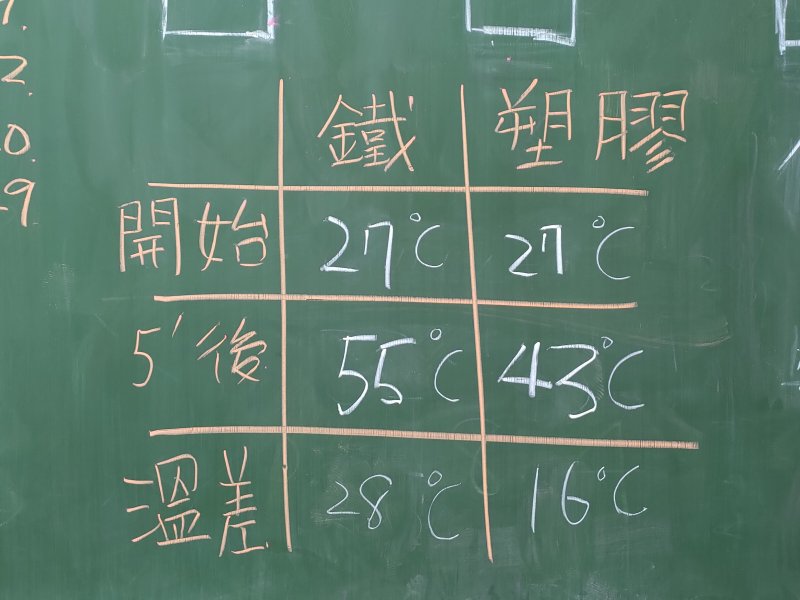 鐵 塑膠
開始 27°C 27°C
5'後 55°C 43°C
溫差 28°C 16°C
2.
0.
9